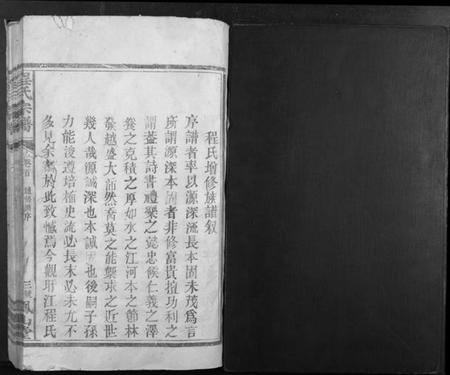 程氏增修族譜叙
序譜者率以源深流長本固末茂爲言
所謂源深本固者非修富貴擅功利之
謂蓋其詩書禮樂之懿忠候仁義之澤
養之克積之厚如水之江河本之節林
發越盛大蔚然喬莫之能禦求之近世
幾人哉源誠深也本誠固也後嗣子孫
力能浚遵培植史流必長末必未尤不
多見余爲於此致憾焉今觀旴江程氏
程氏宗譜
卷首
序